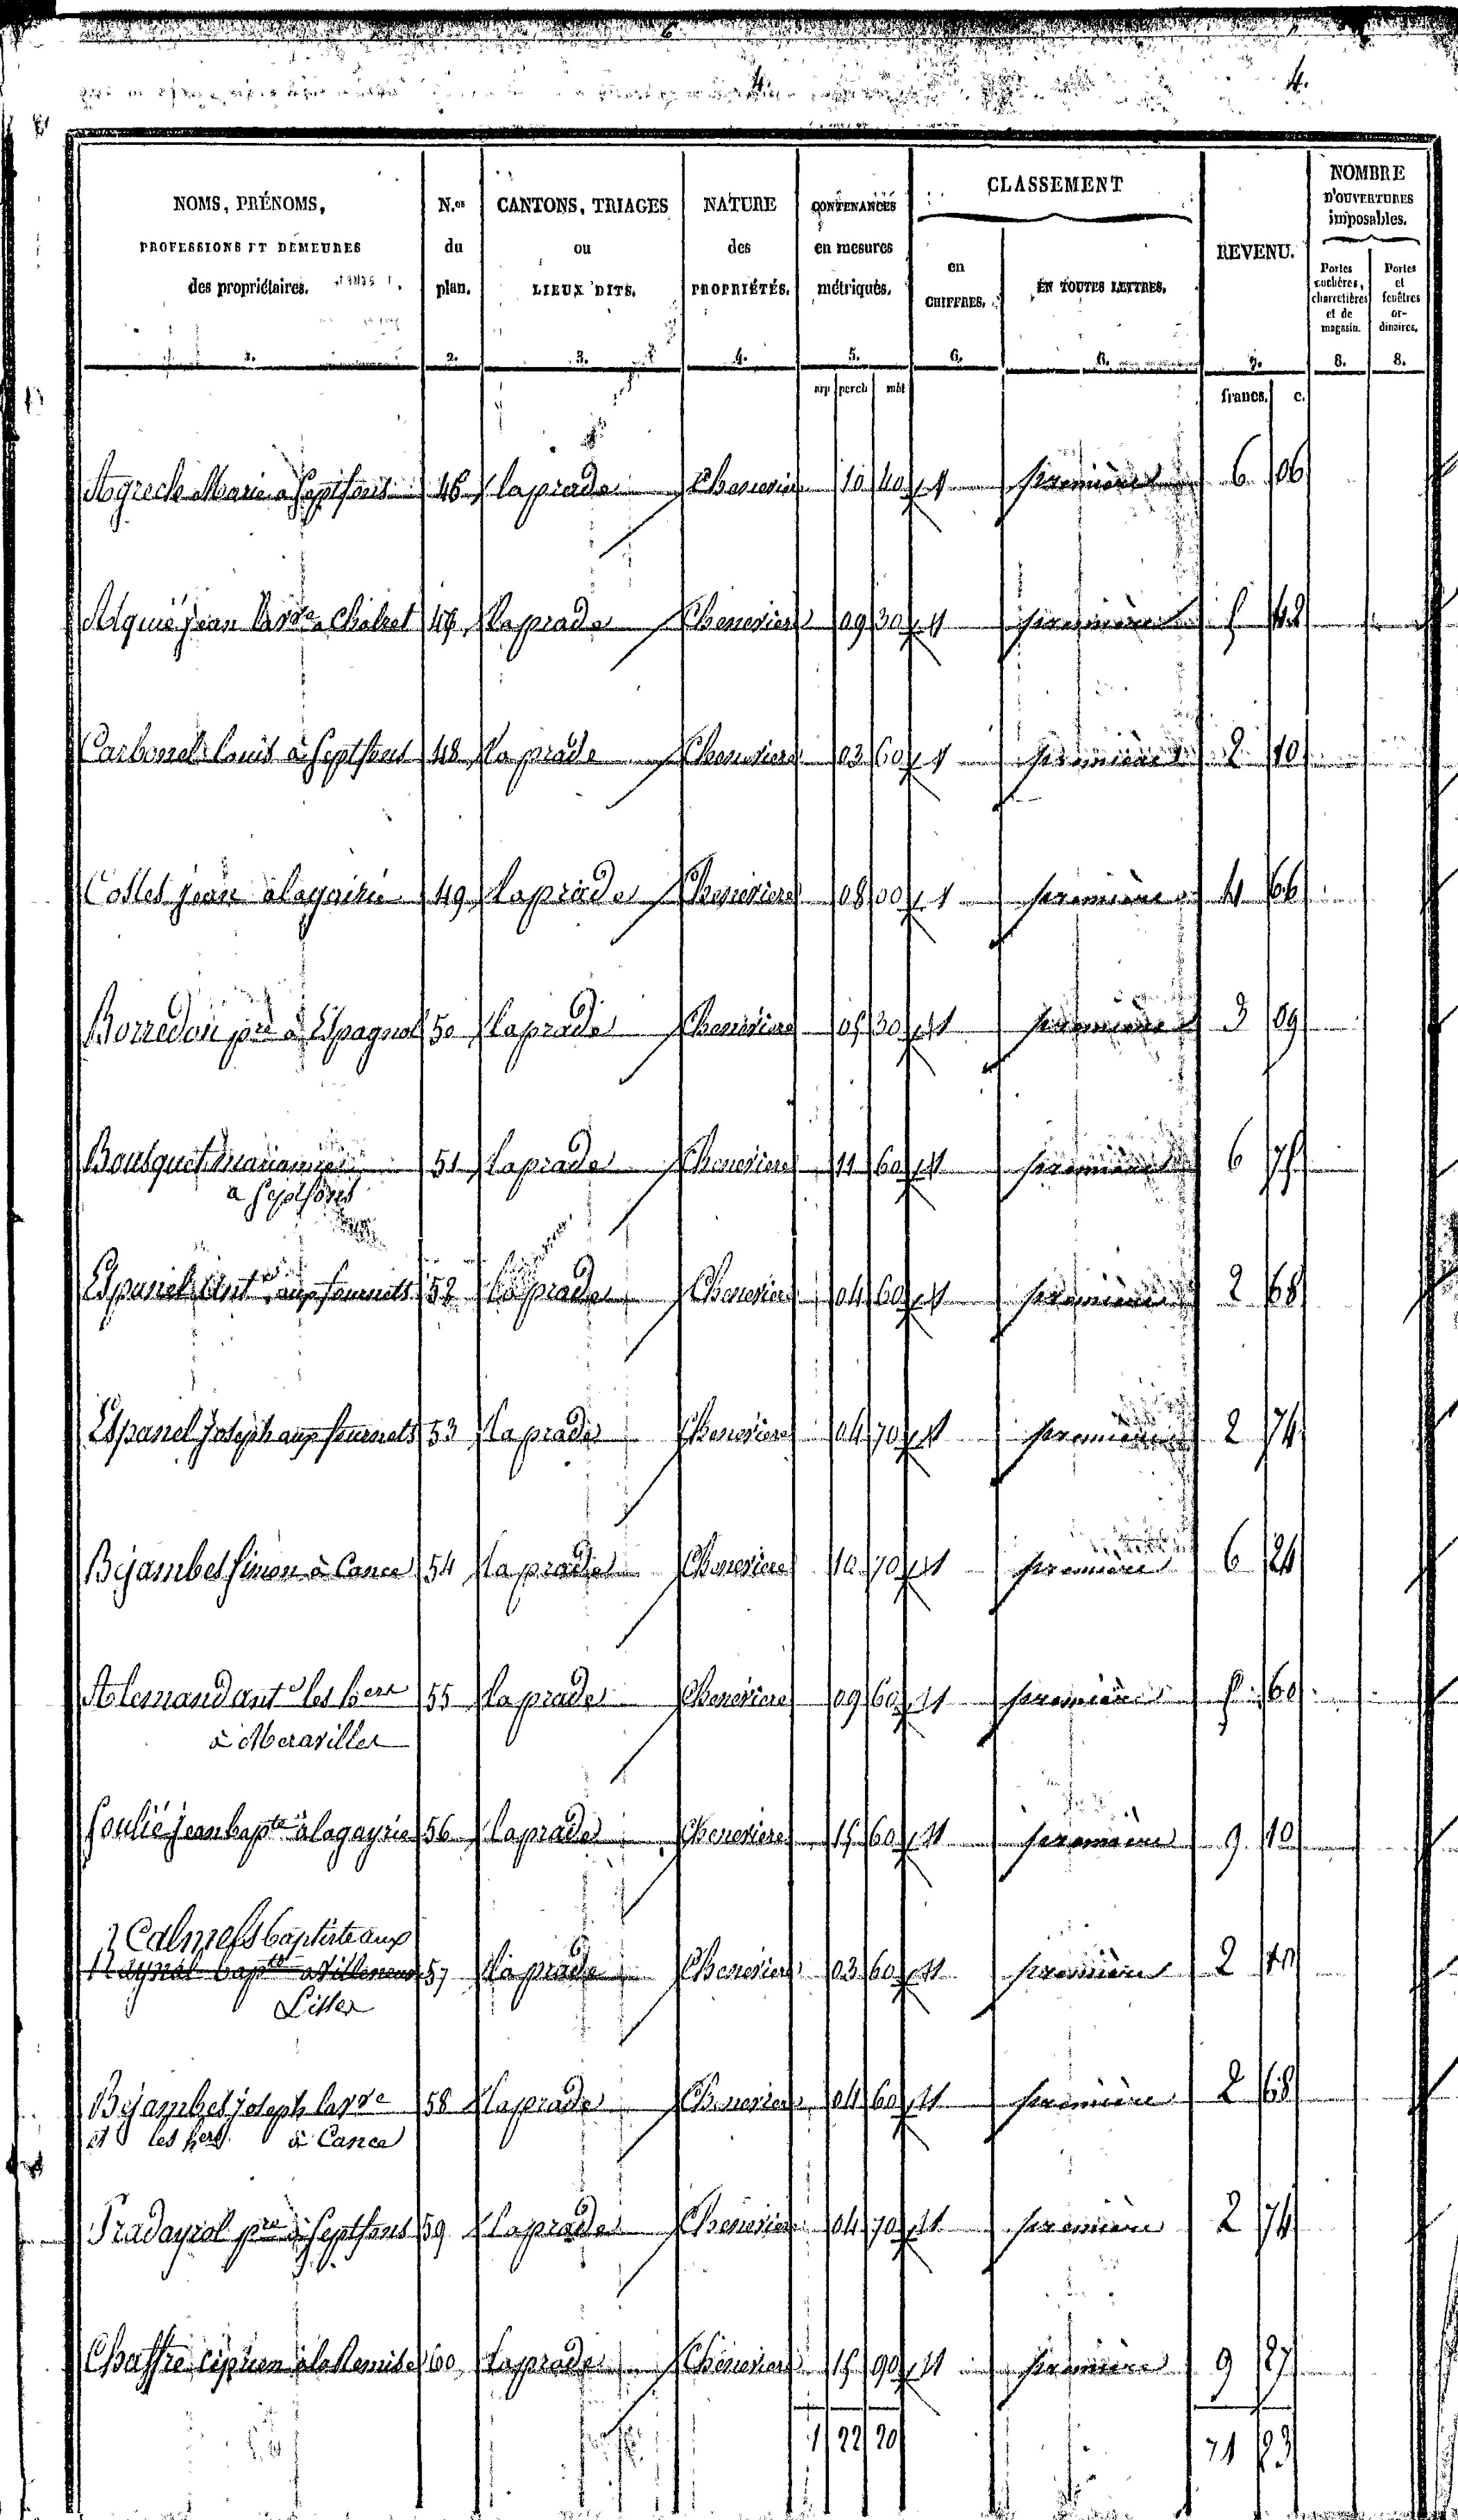 4.
NOMS, PRÉNOMS,
PROFESSIONS ET DEMEURES
des propriétaires.
N.os
du
plan.
CANTONS, TRIAGES
ou
LIEUX DITS.
NATURE
des
PROPRIÉTÉS.
CONTENANCES
en mesures
métriques.
CLASSEMENT
en
CHIFFRES.
EN TOUTES LETTRES.
REVENU.
NOMBRE
D'OUVERTURES
imposables.
Portes
cochères,
charretières
et de
magasin.
Portes
et
fenêtres
or-
dinaires.
1. 2. 3. 4. 5. 6. 6. 7. 8. 8.
arp perch mèt francs. c.
Agrech Marie a Septfons 46 laprade Cheneviere 10 40 1 première 6 06
Alquié jean la vve a Chalret 47 laprade Cheneviere 09 30 1 première 5 42
Carbonel louis à Septfons 48 laprade Cheneviere 03 60 1 première 2 10
Costes jean à lagairie 49 laprade Cheneviere 08 00 1 première 4 66
Borredon pre à Espagnol 50 laprade Cheneviere 05 30 1 première 3 09
Bousquet marianne 51 laprade Cheneviere 11 60 1 première 6 75
a Septfons
Espanel ant aux fournets 52 laprade Cheneviere 04 60 1 première 2 68
Espanel Joseph aux fournets 53 laprade Cheneviere 04 70 1 première 2 74
Bejambes simon à Cance 54 laprade Cheneviere 10 70 1 première 6 24
Alemand ante les hers 55 laprade Cheneviere 09 60 1 première 5 60
à Meravilles
Soulié jean bapte à lagayrie 56 laprade Cheneviere 15 60 1 première 9 10
Calmels baptiste aux
Raynal bapte a Villeneuve 57 laprade Cheneviere 03 60 1 première 2 10
Bejambes joseph la vve 58 laprade Cheneviere 04 60 1 première 2 68
et les hers à Cance
Pradayrol pre à Septfons 59 laprade Cheneviere 04 70 1 première 2 74
Chaffre ciprien à la Remise 60 laprade Cheneviere 15 90 1 première 9 27
1 22 20 71 23